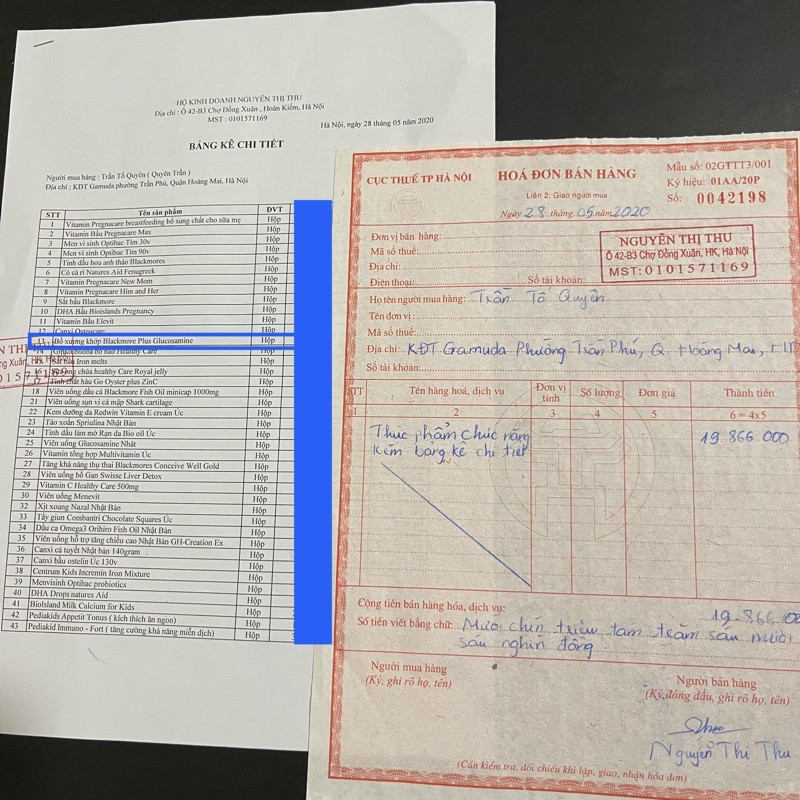 HỘ KINH DOANH NGUYỄN THỊ THU
Địa chỉ : Ô 42-B3 Chợ Đồng Xuân , Hoàn Kiếm, Hà Nội
MST : 0101571169
Hà Nội, ngày 28 tháng 05 năm 2020
BẢNG KÊ CHI TIẾT
Người mua hàng : Trần Tố Quyên ( Quyên Trần )
Địa chỉ : KĐT Gamuda phường Trần Phú, Quận Hoàng Mai, Hà Nội
STT Tên sản phẩm ĐVT
1 Vitamin Pregnacare breastfeeding bổ sung chất cho sữa mẹ Hộp
2 Vitamin Bầu Pregnacare Max Hộp
3 Men vi sinh Optibac Tím 30v Hộp
4 Men vi sinh Optibac Tím 90v Hộp
5 Tinh dầu hoa anh thảo Blackmores Hộp
6 Cỏ cà ri Natures Aid Fenugreek Hộp
7 Vitamin Pregnacare New Mom Hộp
8 Vitamin Pregnacare Him and Her Hộp
9 Sắt bầu Blackmore Hộp
10 DHA Bầu Bioislands Pregnancy Hộp
11 Vitamin Bầu Elevit Hộp
12 Canxi Osteocare Hộp
13 Bổ xương khớp Blackmore Plus Glucosamine Hộp
14 Ginko biloba bổ não Healthy Care Hộp
Sắt bầu Iron melts Hộp
16 Sữa ong chúa healthy Care Royal jelly Hộp
17 Tinh chất hàu Go Oyster plus ZinC Hộp
18 Viên uống dầu cá Blackmores Fish Oil minicap 1000mg Hộp
21 Viên uống sụn vi cá mập Shark cartilage Hộp
22 Kem dưỡng da Redwin Vitamin E cream Úc Hộp
23 Tảo xoắn Spriulina Nhật Bản Hộp
24 Tinh dầu làm mờ Rạn da Bio oil Úc Hộp
25 Viên uống Glucosamine Nhât Hộp
26 Vitamin tổng hợp Multivitamin Úc Hộp
27 Tăng khả năng thụ thai Blackmores Conceive Well Gold Hộp
28 Viên uống bổ Gan Swisse Liver Detox Hộp
29 Vitamin C Healthy Care 500mg Hộp
30 Viên uống Menevit Hộp
32 Xịt xoang Nazal Nhật Bản Hộp
33 Tẩy giun Combantri Chocolate Squares Úc Hộp
34 Dầu ca Omega3 Orihiro Fish Oil Nhật Bản Hộp
35 Viên uống hỗ trợ tăng chiều cao Nhật Bản GH-Creation Ex Hộp
36 Canxi cá tuyết Nhật bản 140gram Hộp
37 Canxi bầu ostelin Úc 130v Hộp
38 Centrum Kids Incremin Iron Mixture Hộp
39 Menvisinh Optibac probiotics Hộp
40 DHA Drops natures Aid Hộp
41 BioIsland Milk Calcium for Kids Hộp
42 Pediakids Appetit Tonus ( kích thích ăn ngon) Hộp
43 Pediakid Immuno - Fort ( tăng cường khả năng miễn dịch) Hộp
CỤC THUẾ TP HÀ NỘI
HOÁ ĐƠN BÁN HÀNG
Liên 2: Giao người mua
Ngày 28 tháng 05 năm 2020
Mẫu số: 02GTTT3/001
Ký hiệu: 01AA/20P
Số: 0042198
Đơn vị bán hàng:
Mã số thuế:
Địa chỉ:
Điện thoại: Số tài khoản:
NGUYỄN THỊ THU
Ô 42-B3 Chợ Đồng Xuân, HK, Hà Nội
MST: 0101571169
Họ tên người mua hàng: Trần Tố Quyên
Tên đơn vị:
Mã số thuế:
Địa chỉ: KĐT Gamuda Phường Trần Phú, Q. Hoàng Mai, HN
Số tài khoản:
STT Tên hàng hoá, dịch vụ Đơn vị tính Số lượng Đơn giá Thành tiền
1 2 3 4 5 6 = 4x5
Thực phẩm chức năng 19.866.000
Kèm bảng kê chi tiết
Cộng tiền bán hàng hóa, dịch vụ: 19.866.00
Số tiền viết bằng chữ: Mười chín triệu tám trăm sáu mươi
sáu nghìn đồng
Người mua hàng
(Ký, ghi rõ họ, tên)
Người bán hàng
(Ký, đóng dấu, ghi rõ họ, tên)
Nguyễn Thị Thu
(Cần kiểm tra, đối chiếu khi lập, giao, nhận hóa đơn)